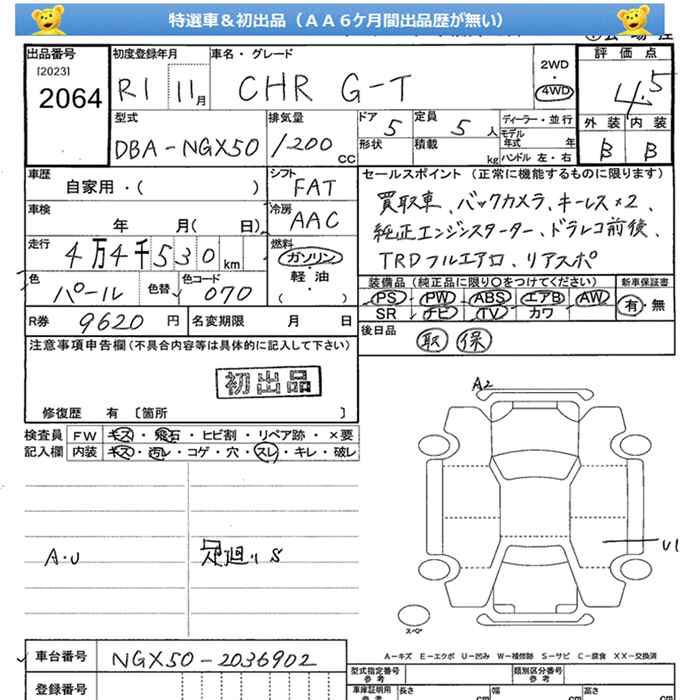 特選車＆初出品（ＡＡ６ケ月間出品歴が無い）
出品番号
[2023]
2064
初度登録年月
R1 11月
車名・グレード
CHR G-T
2WD
・
4WD
評価点
4.5
外装 内装
B B
型式
DBA-NGX50
排気量
1200 cc
ドア 5
形状
定員 5 人
積載 kg
ディーラー・並行
モデル年式 年
ハンドル 左・右
車歴
自家用・( )
シフト
FAT
セールスポイント（正常に機能するものに限ります）
買取車、バックカメラ、キーレス×2
純正エンジンスターター、ドラレコ前後、
TRDフルエアロ、リアスポ
車検
年 月( 日)
冷房
AAC
走行
4万4千530km
燃料
ガソリン
・
軽・油
( )
色
パール
色替
色コード
070
装備品（純正品に限り○をつけてください）
PS PW ABS エアB AW
SR ナビ TV カワ
新車保証書
有・無
R券 9620 円
名変期限 月 日
後日品
取 保
注意事項申告欄(不具合内容等は具体的に記入して下さい)
初出品
修復歴 有 〔箇所 〕
検査員
記入欄
FW キズ・飛石・ヒビ割・リペア跡・×要
内装 キズ・汚レ・コゲ・穴・スレ・キレ・破レ
A2
A・U
足廻りS
U1
スペア
A－キズ E－エクボ U－凹み W－補修跡 S－サビ C－腐食 XX－交換済
車台番号
NGX50-2036902
登録番号
型式指定番号
参考
類別区分番号
参考
車庫証明用
参考
長さ cm
幅 cm
高さ cm